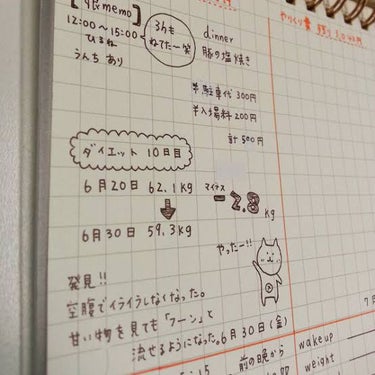 memo]
12:00~15:00
ひるね
うんち あり
3hも
ねてた一笑
dinner
豚の塩焼き
¥駐車代 300円
¥入場料 200円
計 500円
ダイエット 10日目
6月20日 62.1kg
6月30日 59.3kg
マイナス
-2.8kg
やったー!!
発見!!
空腹でイライラしなくなった。
甘い物を見ても「フーン」と
流せるようになった。
6月30日(金)
前の晩から
wake up
weight